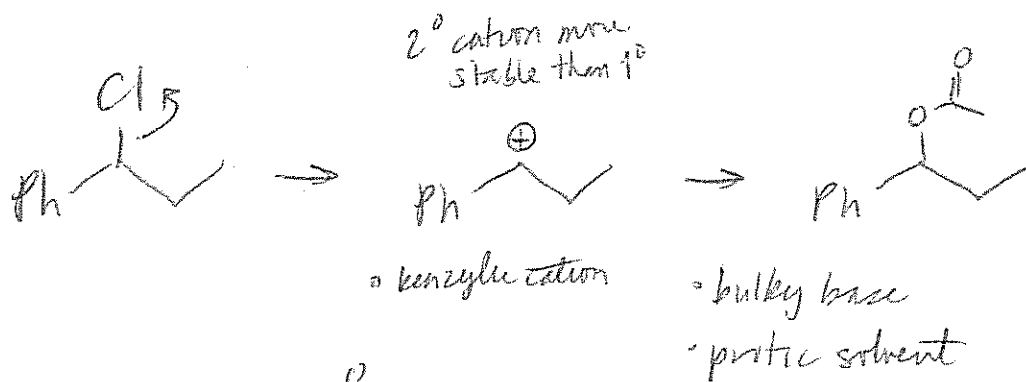 2° cation more
stable than 1°
Cl
O
O
⊕
Ph
Ph
Ph
• benzylic cation
• bulky base
• protic solvent